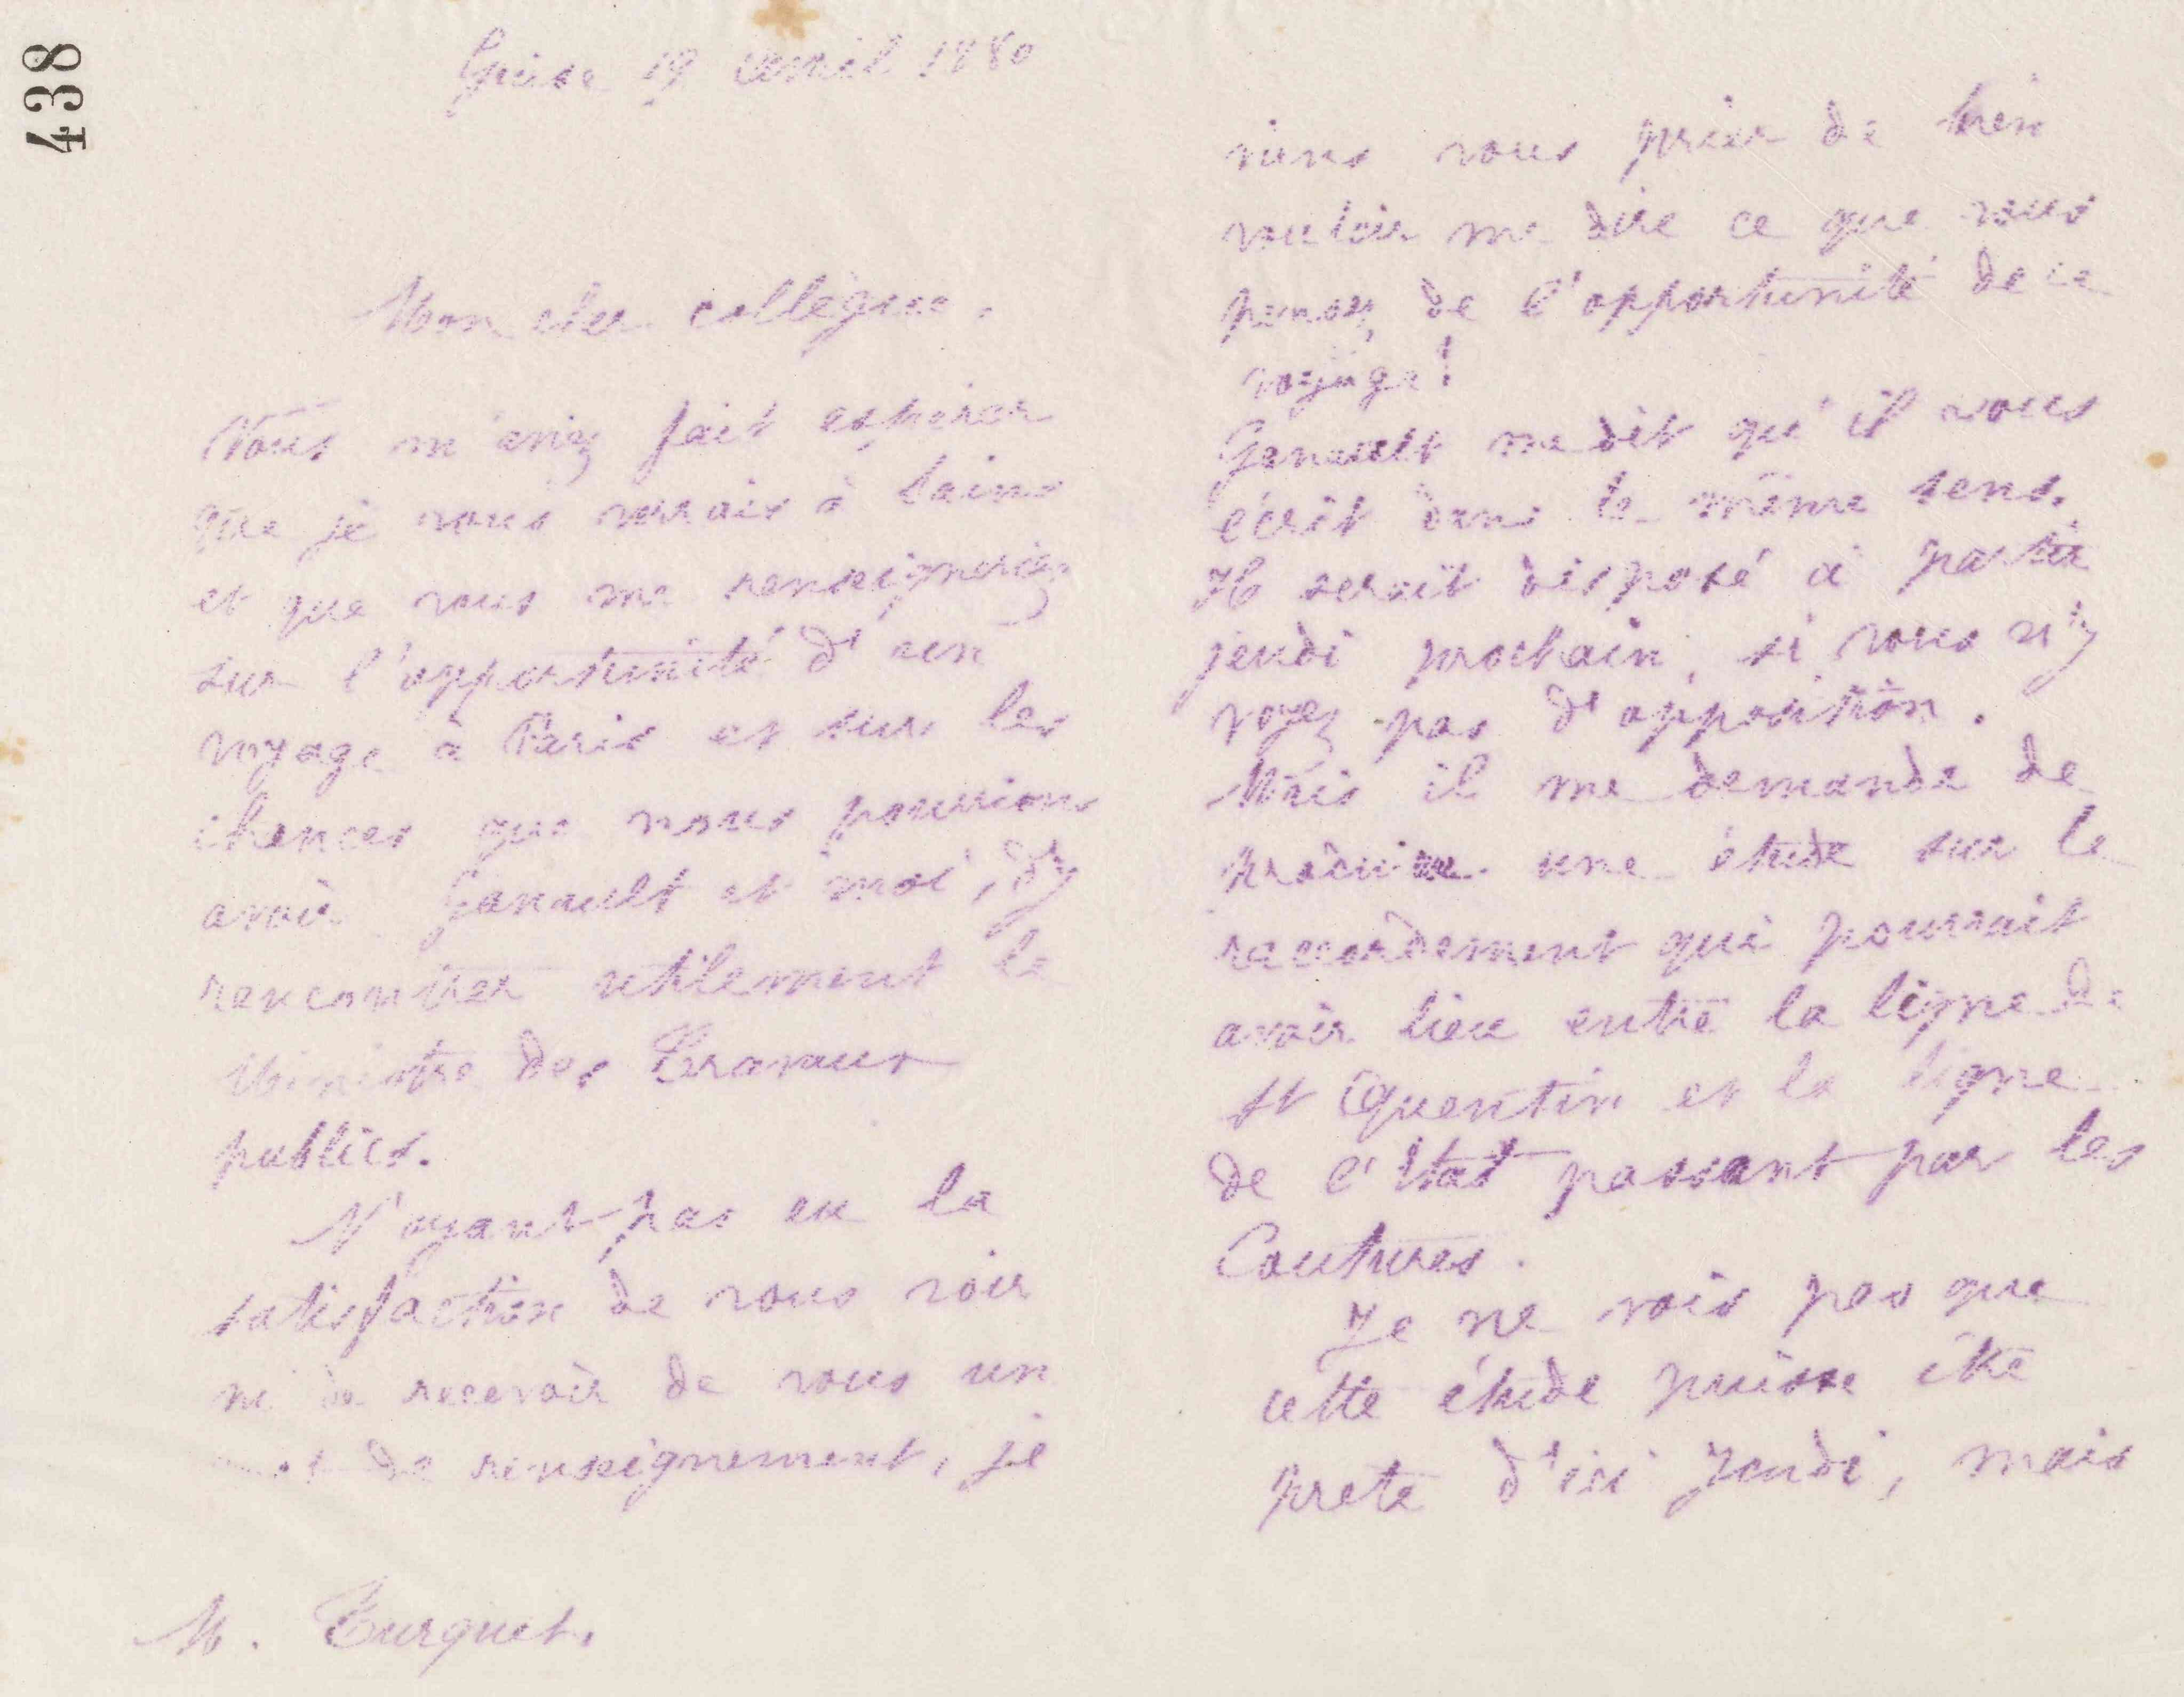 438
Guise 19 avril 1880
Mon cher collègue,
Vous m'aviez fait espérer
que je vous verrais à Laon
et que vous me renseigneriez
sur l'opportunité d'un
voyage à Paris et sur les
chances que nous pouvions
avoir Ganault et moi, d'y
rencontrer utilement le
Ministre des Travaux
publics.
N'ayant pas eu la
satisfaction de vous voir
ni de recevoir de vous un
mot de renseignement, je
M. Turquet.
viens vous prier de bien
vouloir me dire ce que vous
pensez de l'opportunité de ce
voyage!
Ganault me dit qu'il vous
écrit dans le même sens.
Il serait disposé à partir
jeudi prochain, si vous n'y
voyez pas d'opposition.
Mais il me demande de
produire une étude sur le
raccordement qui pourrait
avoir lieu entre la ligne de
St Quentin et la ligne
de l'Etat passant par les
Coutures.
Je ne vois pas que
cette étude puisse être
prete d'ici Jeudi, mais